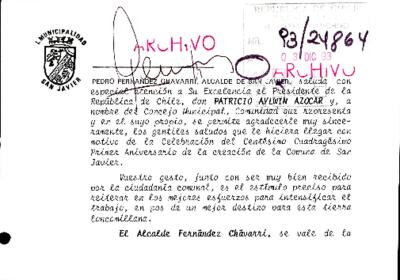 I. MUNICIPALIDAD
SAN JAVIER
ARCHIVO
93/24864
03 DIC 93
ARCHIVO
PEDRO FERNANDEZ CHAVARRI, ALCALDE DE SAN JAVIER, saluda con
especial atención a Su Excelencia el Presidente de la
República de Chile, don PATRICIO AYLWIN AZOCAR y, a
nombre del Concejo Municipal, Comunidad que representa
y en el suyo propio, se permite agradecerle muy since-
ramente, los gentiles saludos que le hiciera llegar con
motivo de la Celebración del Centésimo Cuadragésimo
Primer Aniversario de la creación de la Comuna de San
Javier.
Vuestro gesto, junto con ser muy bien recibido
por la ciudadanía comunal, es el estímulo preciso para
reiterar en los mejores esfuerzos para intensificar el
trabajo, en pos de un mejor destino para esta tierra
loncomillana.
El Alcalde Fernández Chávarri, se vale de la